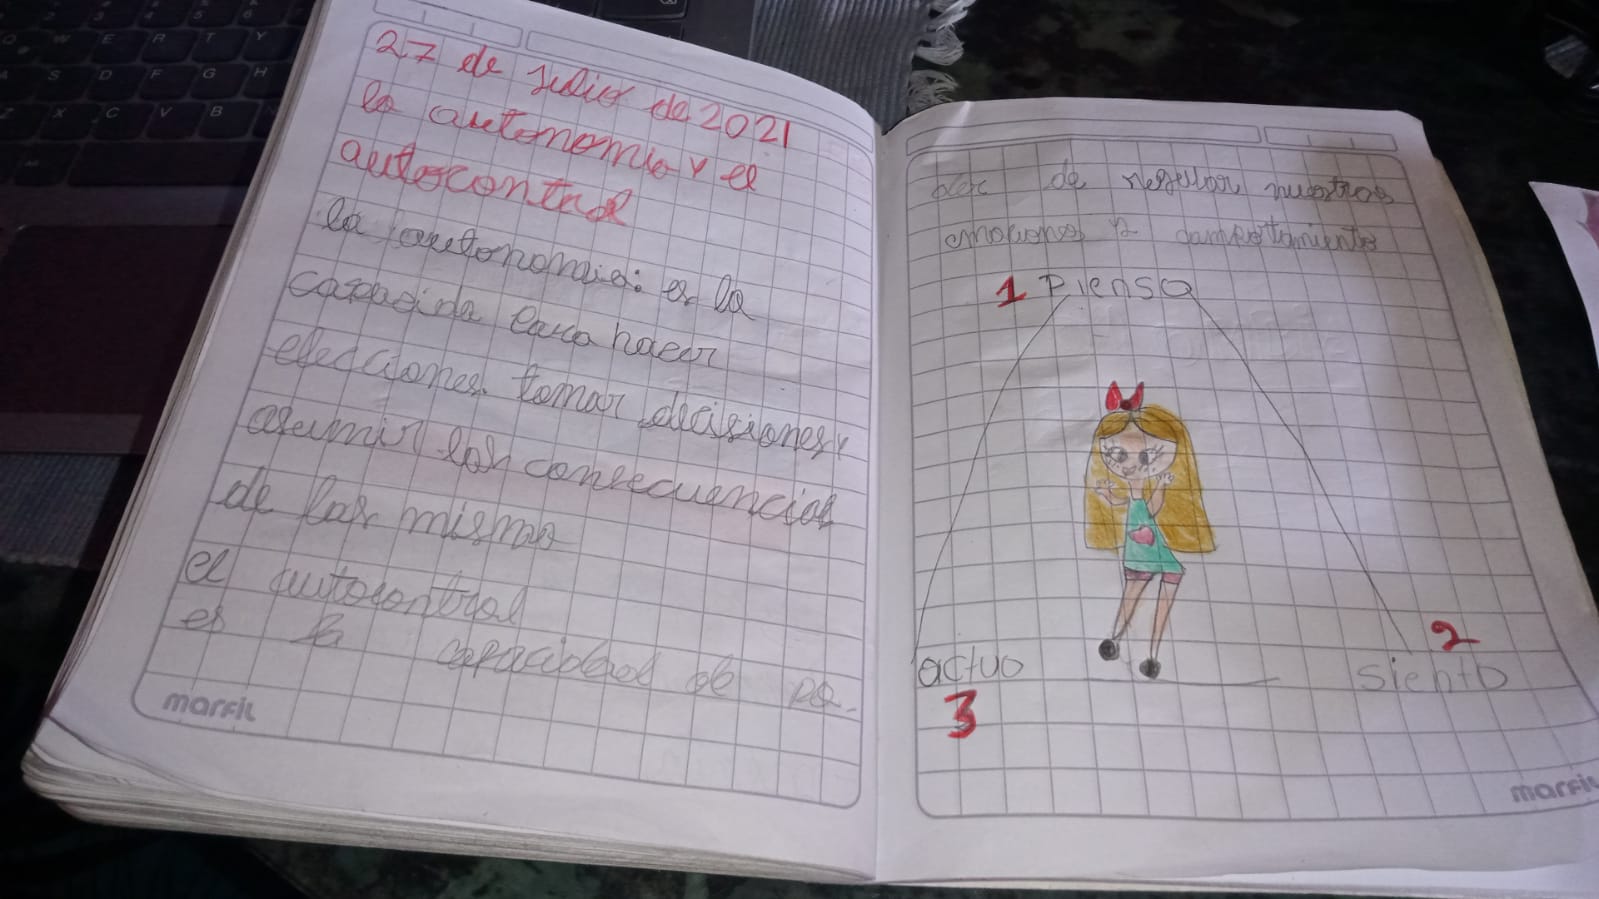 27 de Julio de 2021
la autonomia y el
autocontrol
la autonomia: es la
capacida para hacer
elecciones. tomar decisiones y
asumir las consecuencias
de las mismas
el autocontrol
es la capacidad de po-
marfil
der de regular nuestras
emociones y comportamiento
1 Pienso
2
actuo siento
3
marfil